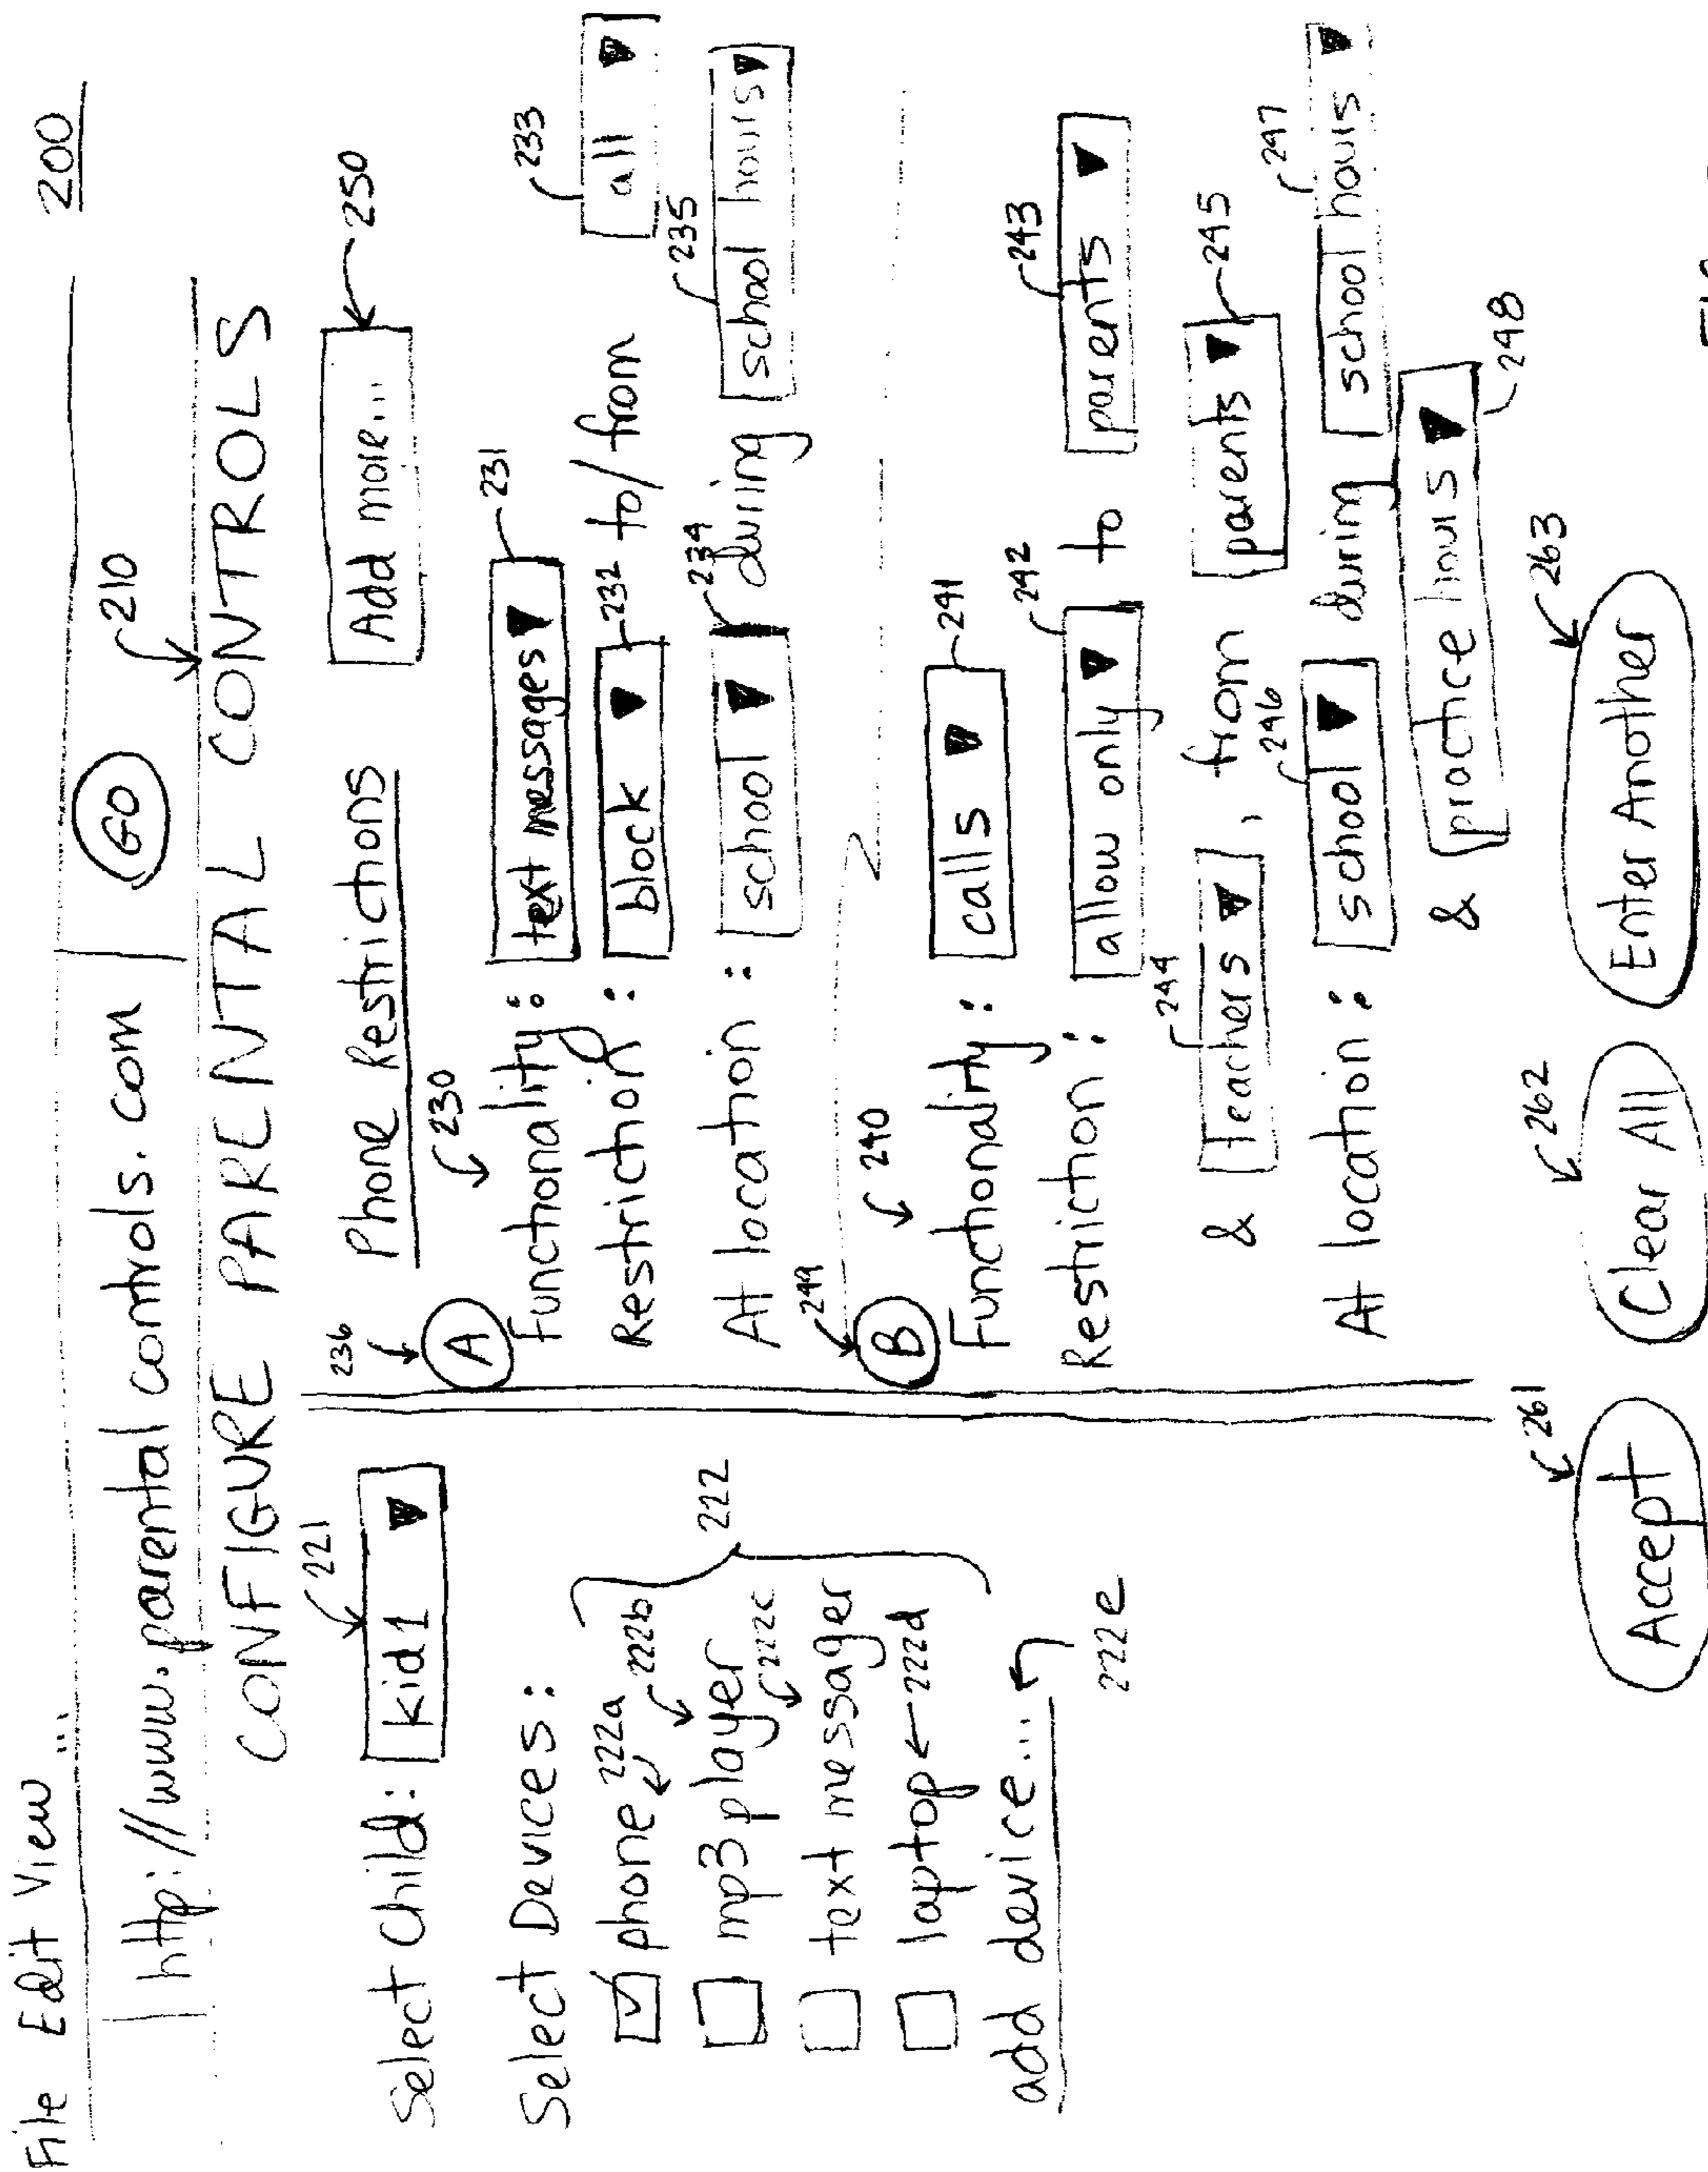 200
File Edit View ...
http://www.parentalcontrols.com GO 210
CONFIGURE PARENTAL CONTROLS
221
Select Child: kid1
Select Devices:
phone 222a
mp3 player 222b
text messager 222c
laptop 222d
222
add device...
222e
236 Phone Restrictions Add more... 250
A 230
Functionality: text messages 231
Restriction: block 232 to/from all 233
At location: school 234 during school hours 235
249
B 240
Functionality: calls 241
Restriction: allow only 242 to parents 243
& teachers 244, from parents 245
At location: school 246 during school hours 247
& practice hours 248
Accept 261 Clear All 262 Enter Another 263